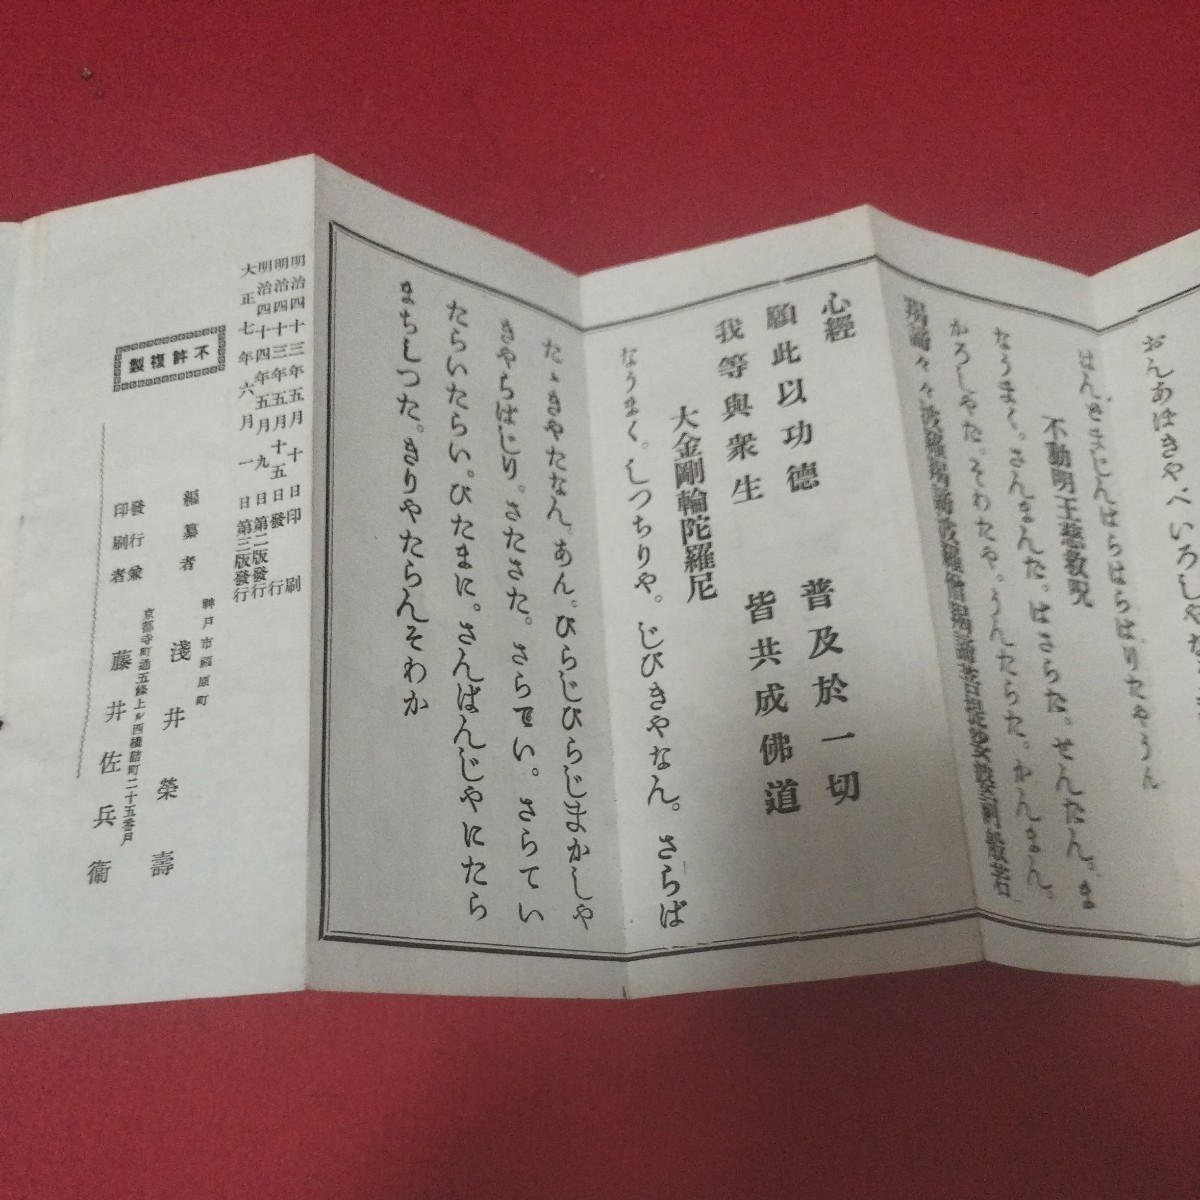 おんあぼきや、べいろしやな
はんどまじんばらはらばりたやうん
不動明王慈救呪
なうまく。さんまんた。ばさらた。せんたん。ま
かろしやた。そわたや。うんたらた。かんまん。
羯諦々々波羅羯諦波羅僧羯諦菩提娑婆訶般若
心經
願此以功德　普及於一切
我等與衆生　皆共成佛道
大金剛輪陀羅尼
なうまく。しつちりや。じびきやなん。さらば
たゝきやたなん。あん。ひらじひらじまかしや
きやらばじり。さたさた。さらてい。さらてい
たらいたらい。ひたまに。さんばんじやにたら
まちしつた。きりやたらんそわか
明治四十三年五月十日印刷
明治四十三年五月十五日發行
明治四十四年五月九日第二版發行
大正七年六月一日第三版發行
不許複製
神戸市
編纂者　淺井榮壽
京都寺町通五條上ル西橋詰町二十五番戸
發行兼
印刷者　藤井佐兵衞